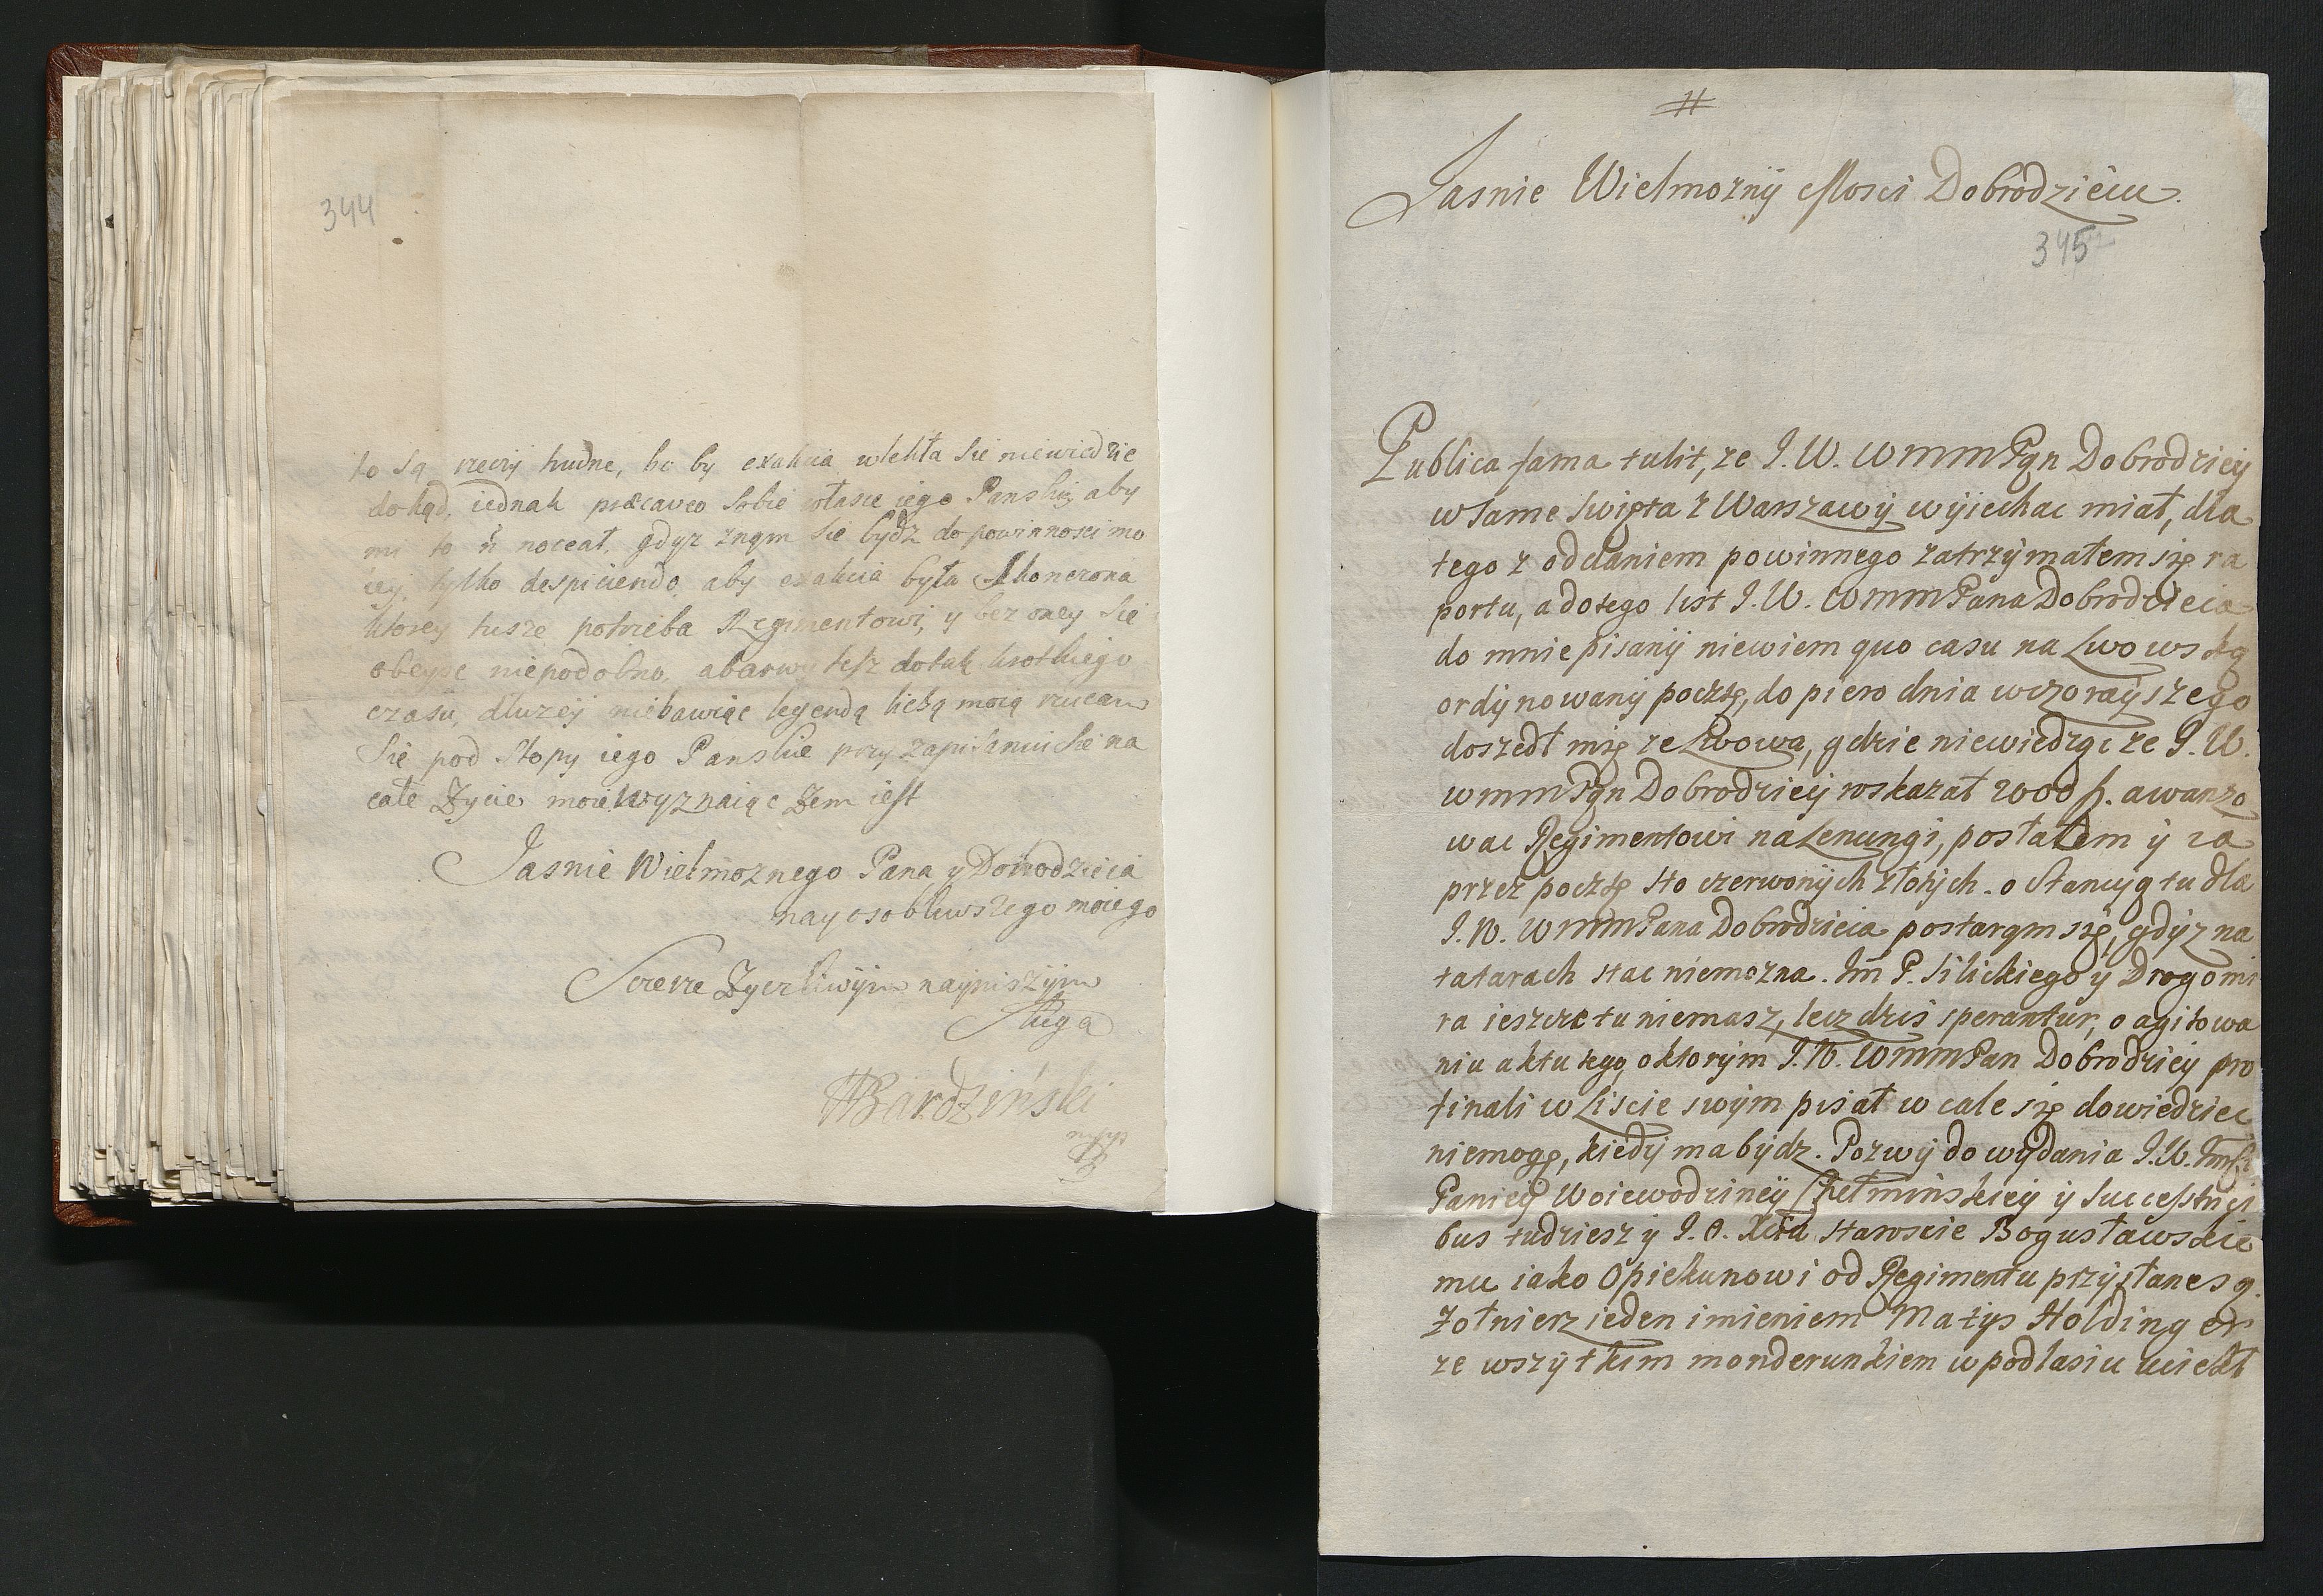 344
to są rzeczy trudne, bo by exakcia wlekła sie niewiedzie
dokąd, iednak præcaveo sobie własce iego Panskiy aby
mi to ń noceat, gdyz znąm sie bydz do powinnosci mo
iey, tylko despiciendo, aby exakcia była skonczona
ktorey tusze potrzeba Regimentowi, y bez oney się
obeysc niepodobna, abarwy tesz dotak krotkiego
czasu, dłuzey niebawiąc legendą lichą moią rzucam
Się pod Stopy iego Panskie przy zapisaniu sie na
całe Zycie moie wyznaiąc Zem iest
Jasnie Wielmoznego Pana y Dobrodzieia
nayosobliwszego moiego
Szczerze Zyczliwÿm nayniszÿm
Sługą
Bardzinski
mpp
#
Jasnie Wielmoznÿ Mosci Dobrodzieiu
345
Publica fama tulit, ze J. W. WmmPąn Dobrodzieÿ
w same swięta z Warszawÿ wÿiechac miał, dla
tego z oddaniem powinnego zatrzÿmałem się ra
portu, a dotego list J. W. WmmPana Dobrodzieia
do mnie pisanÿ niewiem quo casu na Lwowską
ordÿnowanÿ pocztę, do piero dnia wczoraÿszego
doszedł mię ze Lwowa, gdzie niewiedząc ze J. W.
WmmPąn Dobrodzieÿ wskazał 2000 f. awanzo
wac Regimentowi na Lenungi, posłałem ÿ ia
przez pocztę sto czerwonÿch złotÿch. o Stancyą tu dla
J. W. WmmPana Dobrodzieia postarąm się, gdÿz na
tatarach stac niemozna. Im P. Silickiego ÿ Drogomi
ra ieszcze tu niemasz, lecz dzis sperantur, o agitowa
niu aktu tego, oktorÿm J. W. WmmPan Dobrodzieÿ pro
finali w Liscie swÿm pisał w cale się dowiedziec
niemogę, kiedÿ ma bÿdz. Pozwÿ do wÿdania J. W. Imsci
Panieÿ Woiewodzineÿ Chełminskieÿ ÿ Successori
bus tudziesz ÿ J. O. Xcia Staroscie Bogusławskie
mu iako Opiekunowi od Regimentu przÿsłane są.
Zołnierz ieden imieniem Matÿs Holdinger
ze wszÿtkim monderunkiem w podlasiu uciekł